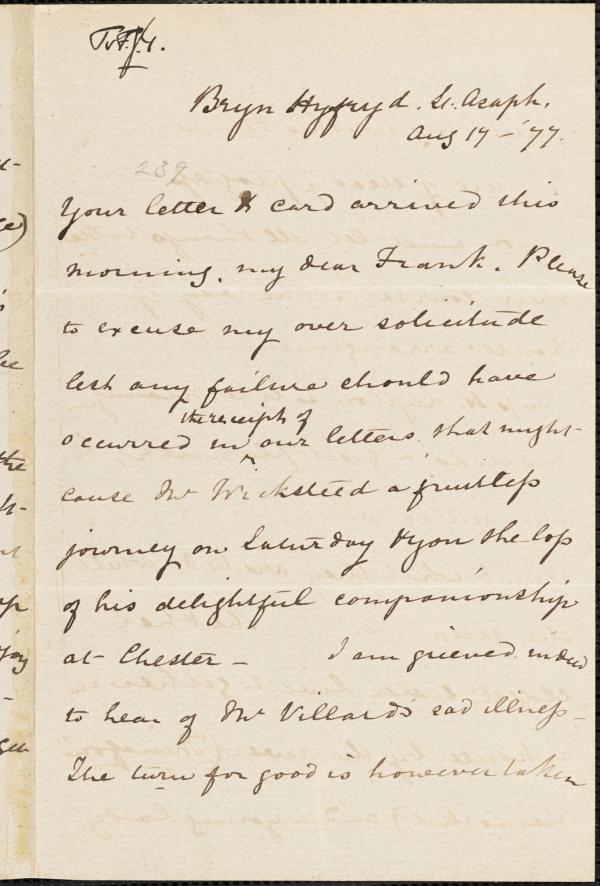 To F.J.G.
Bryn Hyfryd. St. Asaph.
Aug 17 - '77.
239
Your letter & card arrived this
morning, my dear Frank. Please
to excuse my over solicitude
lest any failure should have
the receipt of
occurred in our letters that might
cause Mr Wicksteed a fruitless
journey on Saturday & you the loss
of his delightful companionship
at Chester - I am grieved indeed
to hear of Mr Villard's sad illness -
The turn for good is however taken